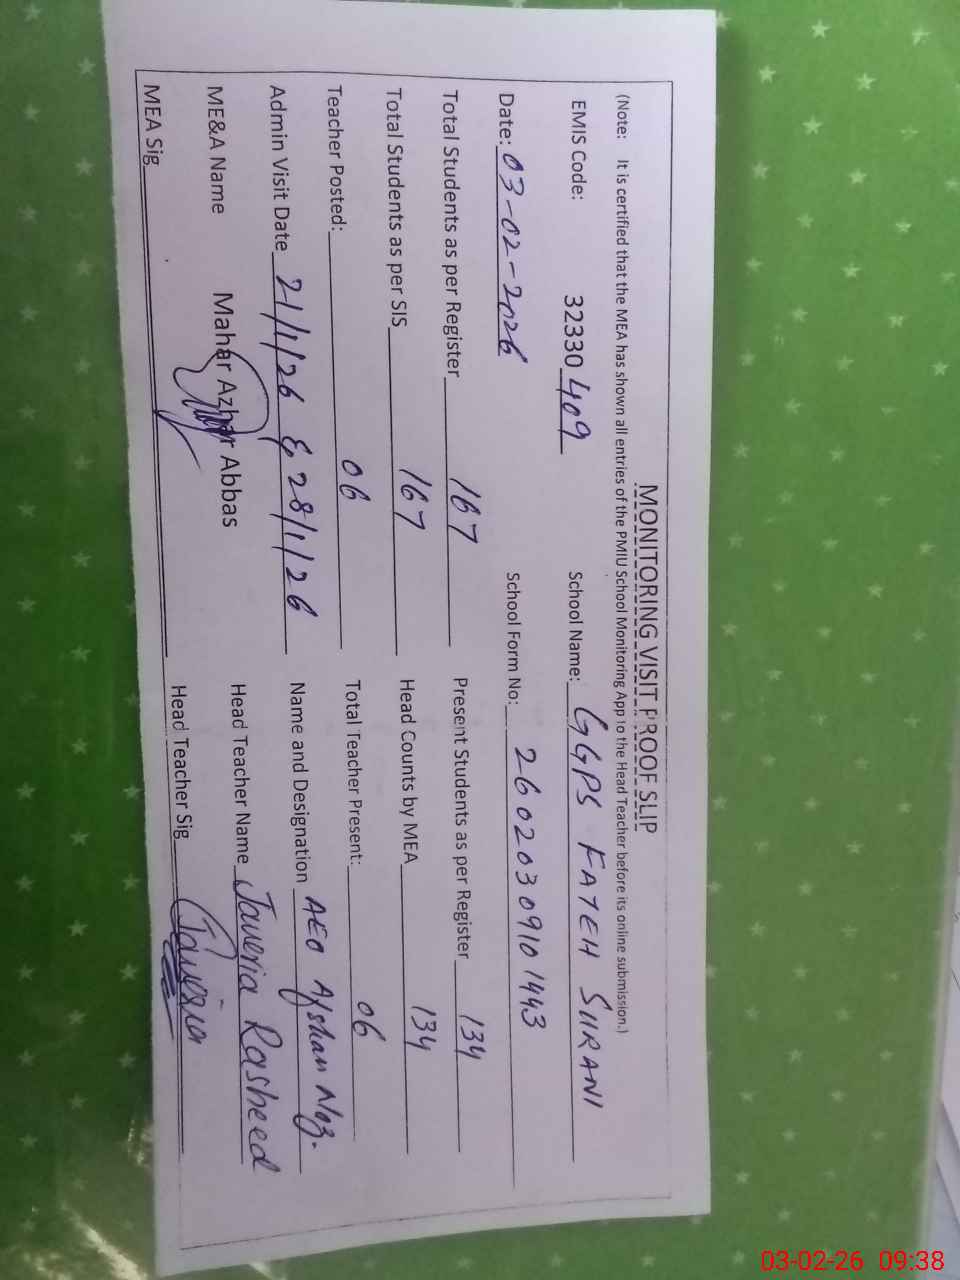 MONITORING VISIT PROOF SLIP
(Note: It is certified that the MEA has shown all entries of the PMIU School Monitoring App to the Head Teacher before its online submission.)
EMIS Code: 32330 409 School Name: GGPS FATEH SURANI
Date: 03-02-2026 School Form No: 26020309101443
Total Students as per Register 167 Present Students as per Register 134
Total Students as per SIS 167 Head Counts by MEA 134
Teacher Posted: 06 Total Teacher Present: 06
Admin Visit Date 21/1/26 & 28/1/26 Name and Designation AEO Afshan Naz.
ME&A Name Mahar Azhar Abbas Head Teacher Name Javeria Rasheed
MEA Sig Head Teacher Sig Javeria
03-02-26 09:38